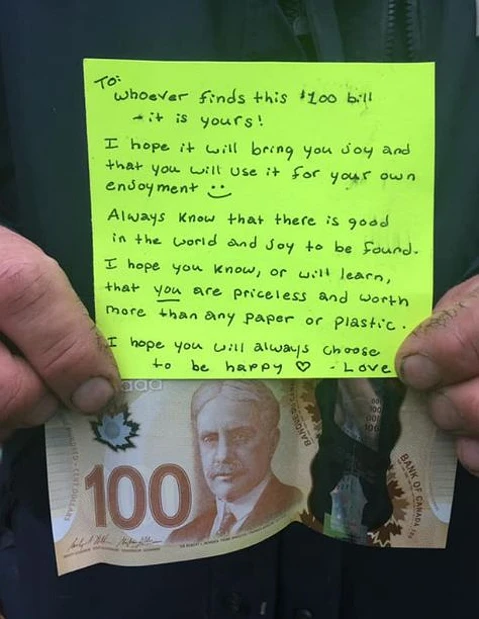 To:
Whoever finds this $100 bill
- it is yours!
I hope it will bring you joy and
that you will use it for your own
enjoyment :)
Always know that there is good
in the world and joy to be found.
I hope you know, or will learn,
that you are priceless and worth
more than any paper or plastic.
I hope you will always choose
to be happy ♡ - Love
100
BANK OF CANADA